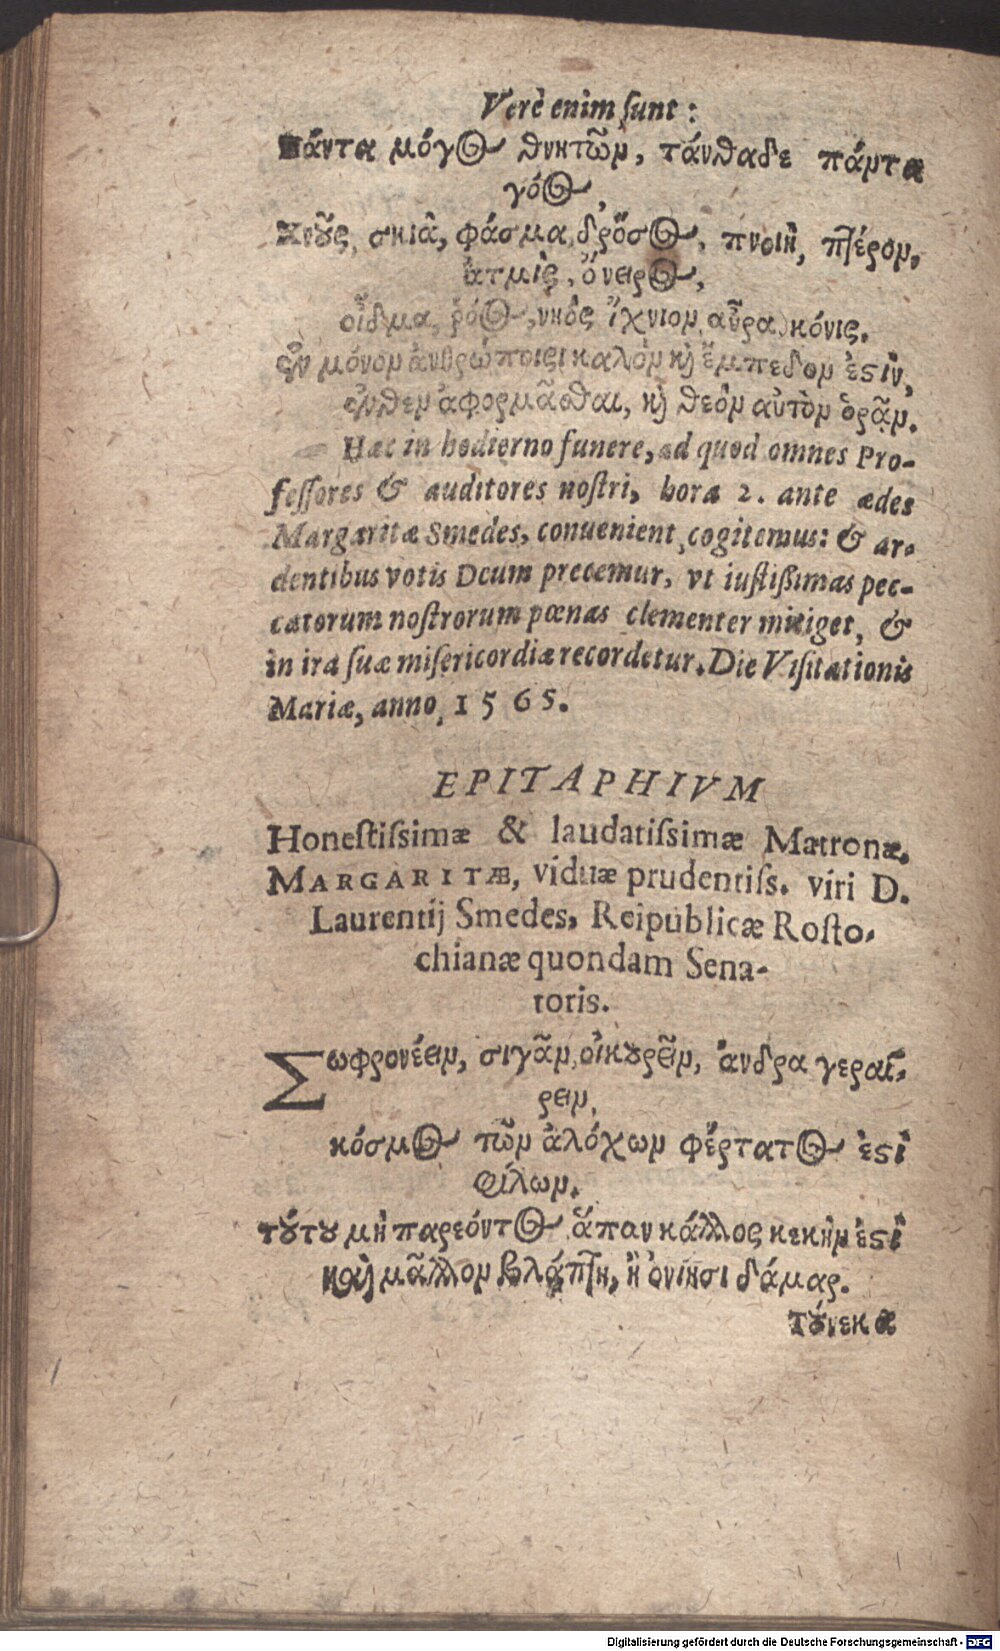 Verè enim sunt:
Πάντα μόγος θνητῶν, τἀνθαδε πάντα
γόος,
Χνοῦς, σκιὰ, φάσμα, δρόσος, πνοιὴ, πτέρον,
ἀτμὶς, ὄνειρος,
οἶδμα, ῥόος, νηὸς ἴχνιον, αὖρα, κόνις.
ἓν μόνον ἀνθρώποισι καλὸν καὶ ἔμπεδον ἐστὶν,
ἔνθεν ἀφορμᾶσθαι, καὶ θεὸν αὐτὸν ὁρᾷν.
Hæc in hodierno funere, ad quod omnes Pro-
feſſores & auditores noſtri, hora 2. ante ædes
Margaritæ Smedes, conuenient, cogitemus: & ar-
dentibus votis Deum precemur, vt iuſtiſsimas pec-
catorum noſtrorum pœnas clementer mitiget, &
in ira ſuæ miſericordiæ recordetur. Die Viſitationis
Mariæ, anno, 1565.
EPITAPHIVM
Honeſtiſsimæ & laudatiſsimæ Matronæ,
MARGARITÆ, viduæ prudentiſs. viri D.
Laurentij Smedes, Reipublicæ Roſto-
chianæ quondam Sena-
toris.
Σωφρονέειν, σιγᾶν, οἰκουρεῖν, ἄνδρα γεραί-
ρειν,
κόσμος τῶν ἀλόχων φέρτατος ἐστὶ
φίλων.
τούτου μὴ παρεόντος ἅπαν κάλλος κεκὴν ἐστὶ
καὶ μᾶλλον βλάπτη, ἢ ὀνίησι δάμας.
τούνεκα
Digitalisierung gefördert durch die Deutsche Forschungsgemeinschaft - DFG